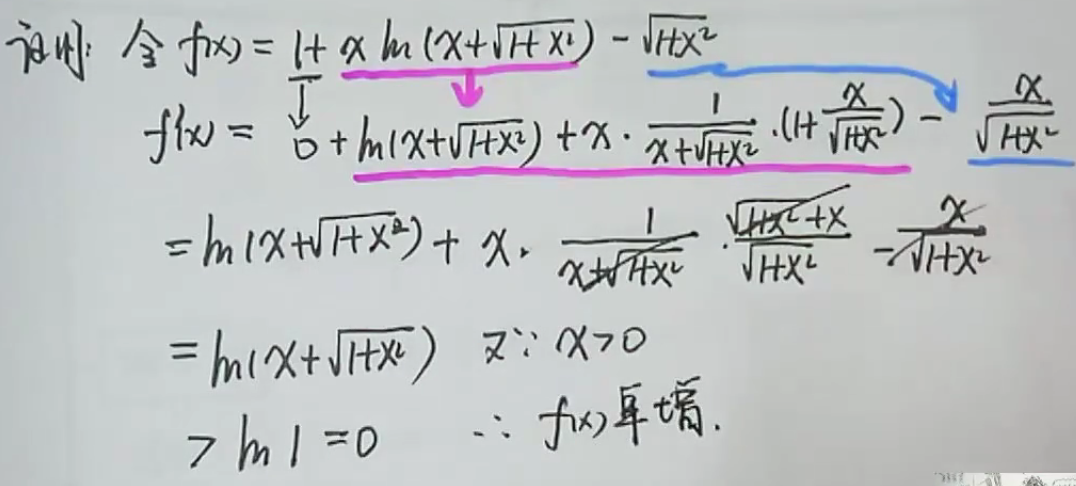 证明: 令 f(x) = 1 + x ln(x+√(1+x²)) - √(1+x²)
f'(x) = 0 + ln(x+√(1+x²)) + x · 1/(x+√(1+x²)) · (1 + x/√(1+x²)) - x/√(1+x²)
= ln(x+√(1+x²)) + x · 1/(x+√(1+x²)) · (√(1+x²)+x)/√(1+x²) - x/√(1+x²)
= ln(x+√(1+x²)) 又∵ x>0
> ln 1 = 0 ∴ f(x)单增.